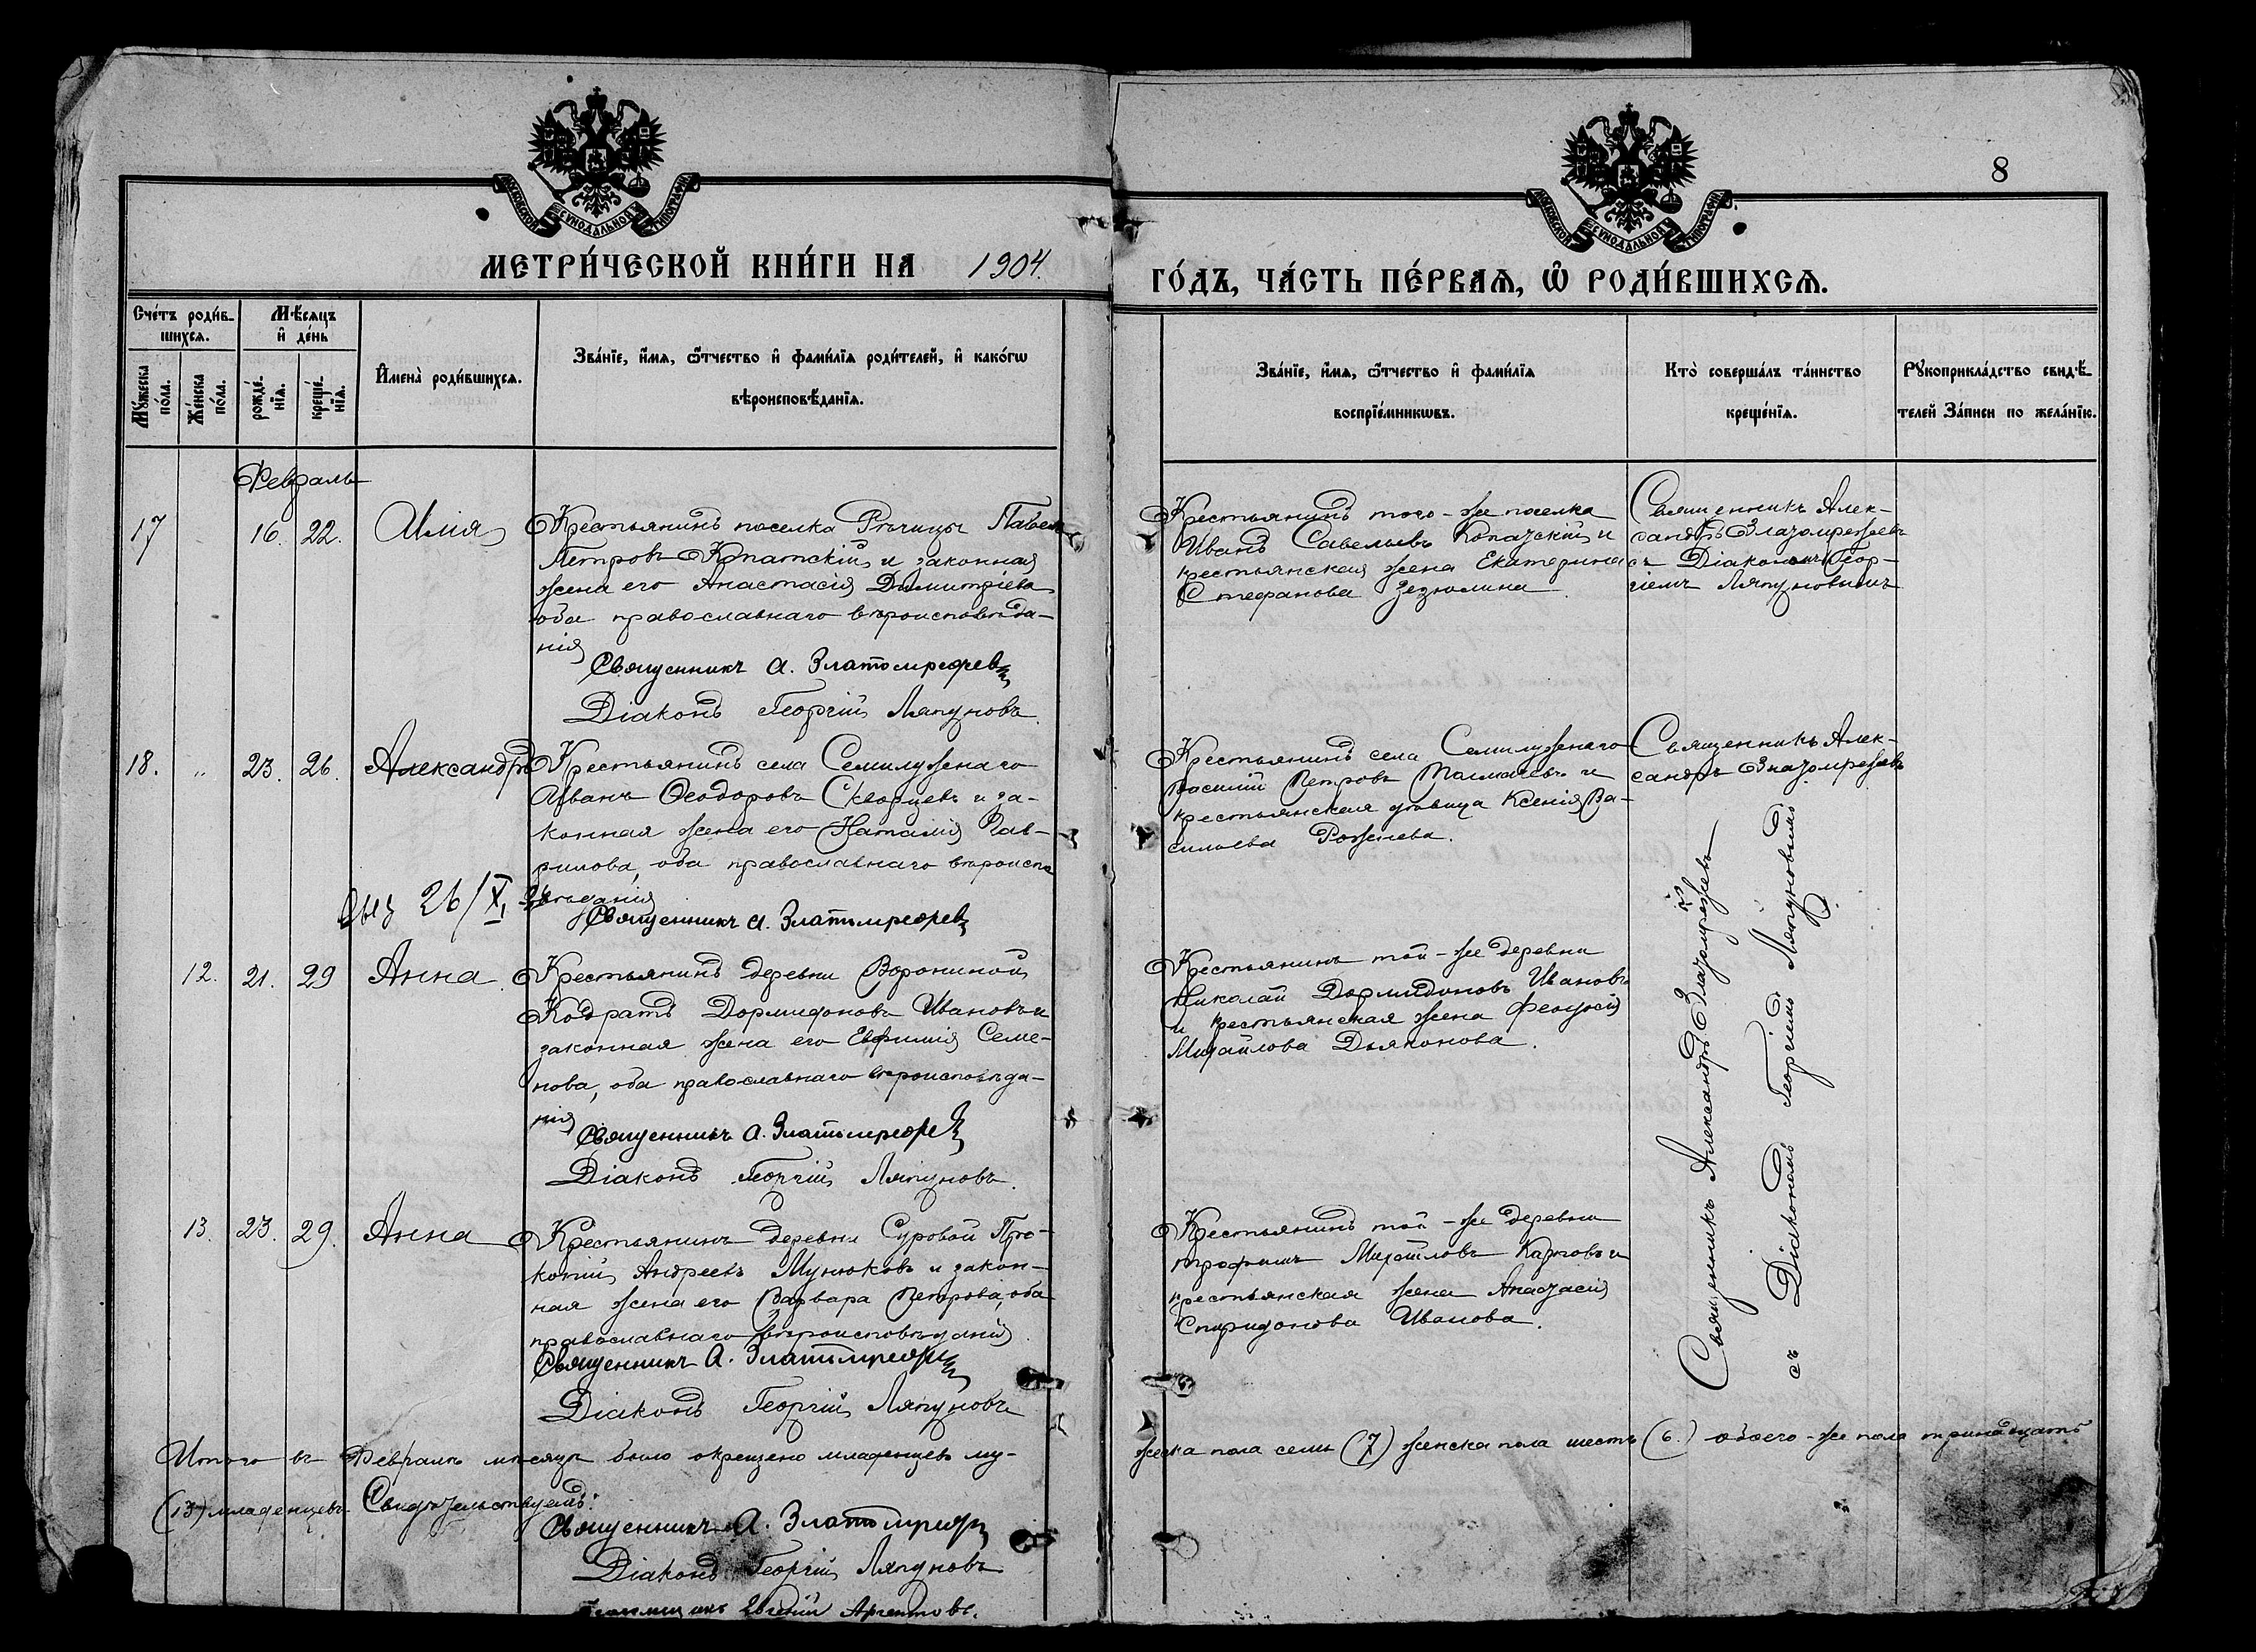 8
МОСКОВСКОЙ СѴНОДАЛЬНОЙ ТИПОГРАФІИ
МОСКОВСКОЙ СѴНОДАЛЬНОЙ ТИПОГРАФІИ
МЕТРИ́ЧЕСКОЙ КНИ́ГИ НА 1904.
ГО́ДЪ, ЧА́СТЬ ПЕ́РВАѦ, Ѽ РОДИ́ВШИХСѦ.
Сче́тъ роди́в-
шихсѧ.
Мѣ́сѧцъ
и҆ де́нь
Мꙋ́жеска
по́ла.
Же́нска
по́ла.
рожде́-
нїѧ.
креще́-
нїѧ.
И҆мена̀ роди́вшихсѧ.
Зва́нїе, и҆́мѧ, ѻ҆́тчество и҆ фами́лїѧ роди́телей, и҆ како́гѡ
вѣроисповѣ́данїѧ.
Зва́нїе, и҆́мѧ, ѻ҆́тчество и҆ фами́лїѧ
воспрїе́мникѡвъ.
Кто̀ соверша́лъ та́инство
креще́нїѧ.
Рꙋкоприкла́дство свидѣ́-
телей за́писи по жела́нїю.
Февраль
17 16. 22. Илія
Крестьянинъ поселка Рѣчицы Павелъ
Петровъ Копатскій и законная
жена его Анастасія Димитріева
оба православнаго вѣроисповѣда-
нія
Священникъ А. Златомрежевъ
Діаконъ Георгій Ляпуновъ.
Крестьянинъ того-же поселка
Иванъ Савельевъ Копатскій и
крестьянская жена Екатерина
Стефанова Зезюлина.
Священникъ Алек-
сандръ Златомрежевъ
съ Діакономъ Геор-
гіемъ Ляпуновымъ
18. " 23. 26. Александръ
Крестьянинъ села Семилуженаго
Иванъ Ѳеодоровъ Скворцевъ и за-
конная жена его Наталія Гав-
рилова, оба православнаго вѣроиспо
вѣданія
26/X
Священникъ А. Златомрежевъ
Крестьянинъ села Семилуженаго
Василій Петровъ Толмачевъ и
крестьянская дѣвица Ксенія Ва-
сильева Рожнева.
Священникъ Алек-
сандръ Златомрежевъ
12. 21. 29 Анна.
Крестьянинъ деревни Ворониной
Кодратъ Дормидоновъ Ивановъ и
законная жена его Евфимія Семе-
нова, оба православнаго вѣроисповѣда-
нія
Священникъ А. Златомрежев
Діаконъ Георгій Ляпуновъ.
Крестьянинъ той-же деревни
Николай Дормидоновъ Ивановъ
и крестьянская жена Феодосія
Михайлова Дьяконова.
13. 23. 29. Анна
Крестьянинъ деревни Суровой Про-
копій Андреевъ Мунюковъ и закон-
ная жена его Варвара Петрова, оба
православнаго вѣроисповѣданія.
Священникъ А. Златомрежев
Діаконъ Георгій Ляпуновъ
Крестьянинъ той-же деревни
Трофимъ Михайловъ Карповъ и
крестьянская жена Анастасія
Спиридонова Иванова.
Священникъ Александръ Златомрежевъ
съ Діакономъ Георгіемъ Ляпуновымъ
Итого въ Февралѣ мѣсяцѣ было окрещено младенцевъ му-
жеска пола семь (7) женска пола шесть (6.) обоего-же пола тринадцать
(13) младенцевъ. Свидѣтельствуемъ:
Священникъ А. Златомрежев
Діаконъ Георгій Ляпуновъ
Псаломщикъ Евгеній Аргентовъ.